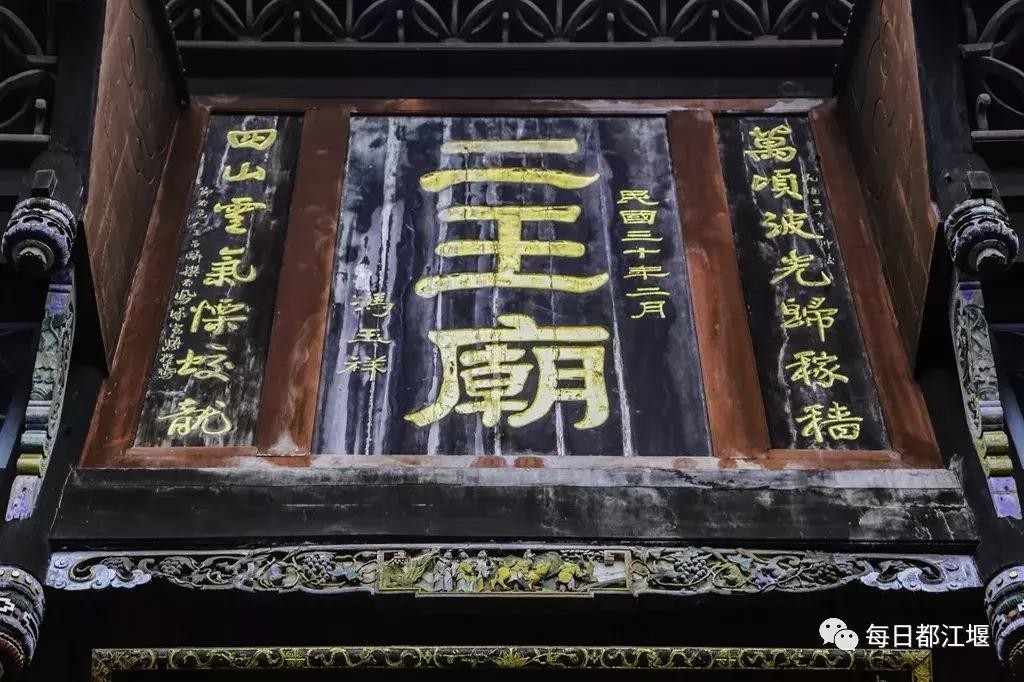 萬頃波光歸稼穡
民國三十年二月
二王廟
馮玉祥
四山雲氣蛟龍
每日都江堰